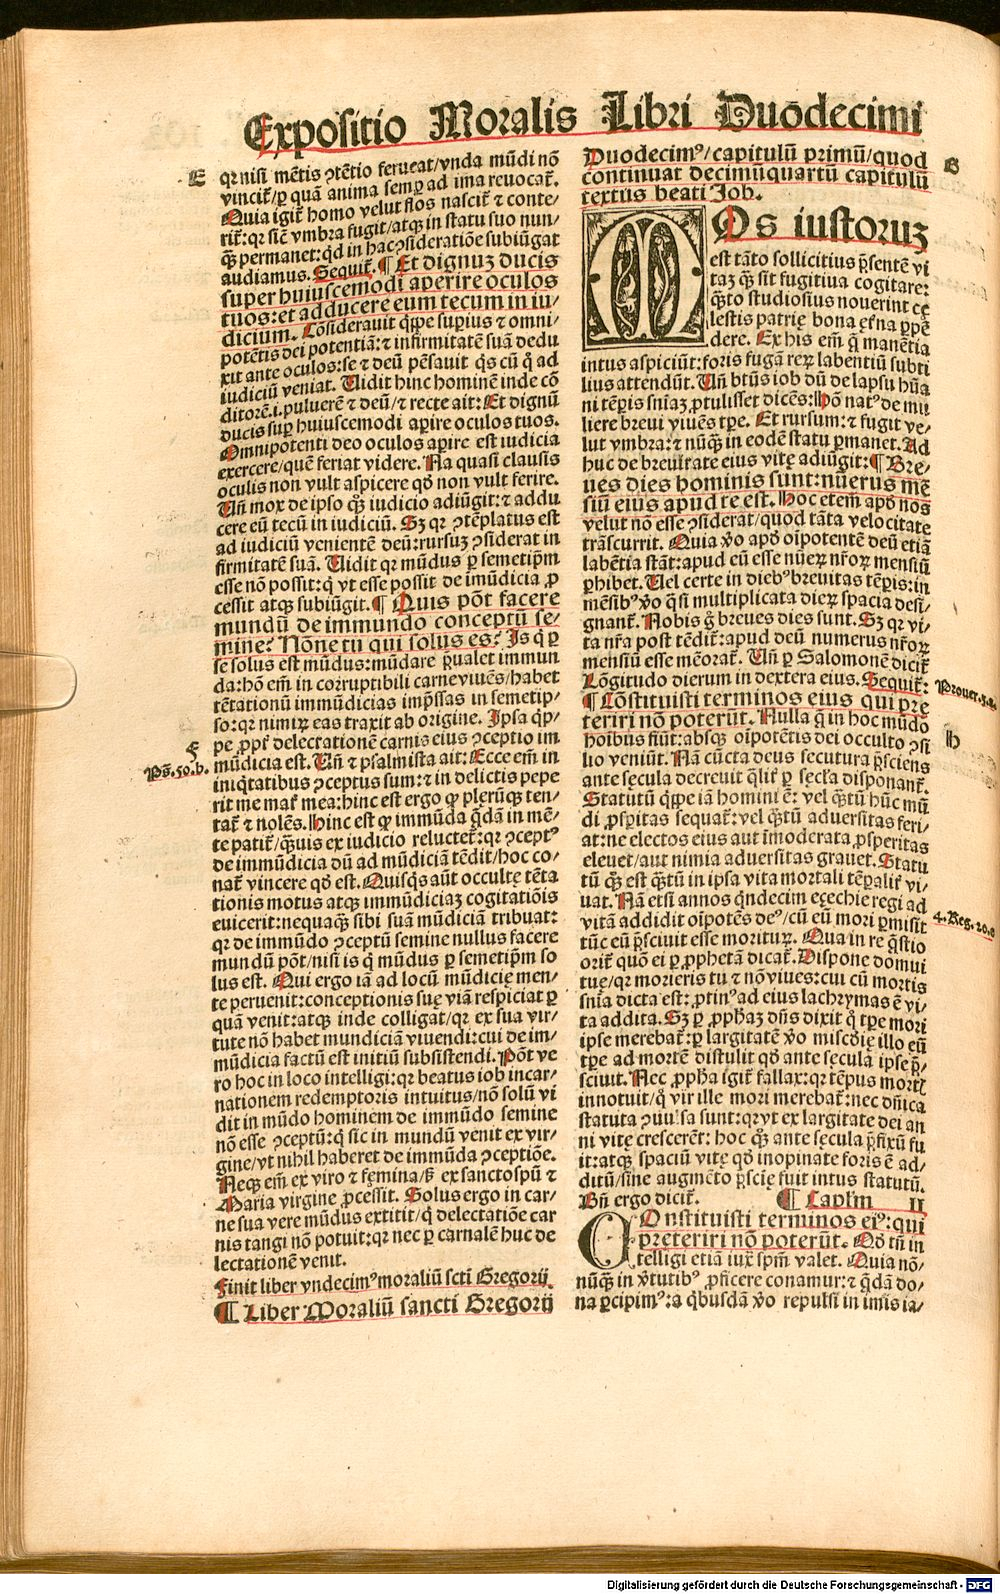 Expositio Moralis Libri Duodecimi
E
qꝛ nisi mētis ꝯtētio ferueat/vnda mūdi nō
vincit᷑/ꝑ quā anima semꝑ ad ima reuocat᷑.
Quia igit᷑ homo velut flos nascit᷑ ⁊ conte-
rit᷑: qꝛ sic̄ vmbra fugit/atqꝫ in statu suo nun-
qꝫ̄ permanet: qd̓ in hac ꝯsideratiōe subiūgat
audiamus. Sequit᷑. ¶ Et dignuꝫ ducis
super huiuscemodi aperire oculos
tuos: et adducere eum tecum in iu-
dicium. Cōsiderauit qͥppe suꝑius ⁊ omni-
potētis dei potentiā: ⁊ infirmitatē suā dedu
xit ante oculos: se ⁊ deū pēsauit qͥs cū qͦ ad
iudiciū veniat. Vidit hinc hominē inde cō
ditorē .i. puluerē ⁊ deū/⁊ recte ait: Et dignū
ducis suꝑ huiuscemodi aꝑire oculos tuos.
Omnipotenti deo oculos aꝑire est iudicia
exercere/quē feriat videre. Na quasi clausis
oculis non vult aspicere qd̓ non vult ferire.
Vn̄ mox de ipso qꝫ iudicio adiūgit: ⁊ addu
cere eū tecū in iudiciū. Sꝫ qꝛ ꝯtēplatus est
ad iudiciū venientē deū: rursuꝫ ꝯsiderat in
firmitatē suā. Vidit qꝛ mūdus ꝑ semetip̄m
esse nō possit: qͥ vt esse possit de imūdicia ꝓ
cessit atqꝫ subiūgit. ¶ Quis pōt facere
mundū de immundo conceptū se-
mine? Nōne tu qui solus es? Is qͥ ꝑ
se solus est mūdus: mūdare p̄ualet immun
da: hō em̄ in corruptibili carne viuēs/habet
tētationū immūdicias imp̄ssas in semetip-
so: qꝛ nimiꝝ eas traxit ab origine. Ipsa qͥp-
F
pe ꝓpt᷑ delectationē carnis eius ꝯceptio im
Ps̄. 50. b.
mūdicia est. Vn̄ ⁊ psalmista ait: Ecce em̄ in
iniqͥtatibus ꝯceptus sum: ⁊ in delictis pepe
rit me mat᷑ mea: hinc est ergo ꝙ plerūqꝫ ten-
tat᷑ ⁊ nolēs. Hinc est ꝙ immūda qͥdā in mē-
te patit᷑/qꝫ̄uis ex iudicio reluctet᷑: qꝛ ꝯceptꝰ
de immūdicia dū ad mūdiciā tēdit/hoc co-
nat᷑ vincere qd̓ est. Quisqͥs aūt occultę tēta
tionis motus atqꝫ immūdiciaꝫ cogitatiōis
euicerit: nequaqꝫ̄ sibi suā mūdiciā tribuat:
qꝛ de immūdo ꝯceptū semine nullus facere
mundū pōt/nisi is qͥ mūdus ꝑ semetip̄m so
lus est. Qui ergo iā ad locū mūdicię men-
te peruenit: conceptionis suę viā respiciat ꝑ
quā venit: atqꝫ inde colligat/qꝛ ex sua vir-
tute nō habet mundiciā viuendi: cui de im-
mūdicia factū est initiū subsistendi. Pōt ve
ro hoc in loco intelligi: qꝛ beatus iob incar-
nationem redemptoris intuitus/nō solū vi
dit in mūdo hominem de immūdo semine
nō esse ꝯceptū: qͥ sic in mundū venit ex vir-
gine/vt nihil haberet de immūda ꝯceptiōe.
Neqꝫ em̄ ex viro ⁊ fęmina/sꝫ ex sancto spū ⁊
Maria virgine ꝓcessit. Solus ergo in car-
ne sua vere mūdus extitit/qͥ delectatiōe car
nis tangi nō potuit: qꝛ nec ꝑ carnalē huc de
lectationē venit.
Finit liber vndecimꝰ moraliū scti Gregorij
¶ Liber Moraliū sancti Gregorij
Duodecimꝰ/capitulū primū/quod
G
continuat decimūquartū capitulū
textus beati Job.
MOs iustoruꝫ
est tāto sollicitius p̄sentē vi
taꝫ qꝫ̄ sit fugitiua cogitare:
qꝫ̄to studiosius nouerint cę
lestis patrię bona ęt᷑na ꝑpē
dere. Ex his em̄ q̄ manētia
intus aspiciūt: foris fugā reꝝ labentiū subti
lius attendūt. Vn̄ bt̄us iob dū de lapsu hūa
ni tēꝑis sn̄iaꝫ ꝓtulisset dicēs: Hō natꝰ de mu
liere breui viuēs tꝑe. Et rursum: ⁊ fugit ve-
lut vmbra: ⁊ nūqꝫ̄ in eodē statu ꝑmanet. Ad
huc de breuitate eius vitę adiūgit: ¶ Bre-
ues dies hominis sunt: nūerus mē
siū eius apud te est. Hoc etem̄ apd̓ nos
velut nō esse ꝯsiderat/quod tāta velocitate
trāscurrit. Quia v̓o apd̓ oīpotentē deū etiā
labētia stāt: apud eū esse nūeꝝ nr̄oꝝ mensiū
ꝑhibet. Uel certe in diebꝰ breuitas tēꝑis: in
mēsibꝰ v̓o qͣsi multiplicata dieꝝ spacia desi-
gnant᷑. Nobis gͦ breues dies sunt. Sꝫ qꝛ vi-
ta nr̄a post tēdit᷑: apud deū numerus nr̄oꝝ
mensiū esse mēorat᷑. Vn̄ ꝑ Salomonē dicit᷑
Lōgitudo dierum in dextera eius. Sequit᷑:
Prouer. 3. b.
¶ Cōstituisti terminos eius qui pre
teriri nō poterūt. Nulla q̄ in hoc mūdo
H
hoībus fiūt: absqꝫ oīpotētis dei occulto ꝯsi
lio veniūt. Nā cūcta deus secutura p̄sciens
ante sęcula decreuit qͣlit᷑ ꝑ sęcl̓a disponant᷑.
Statutū qͥppe iā homini ē: vel qꝫ̄tū hūc mū
di ꝓsꝑitas sequat᷑: vel qꝫ̄tū aduersitas feri-
at: ne electos eius aut īmoderata ꝓsperitas
eleuet/aut nimia aduersitas grauet. Statu
tū qꝫ est qꝫ̄tū in ipsa vita mortali tēꝑalit᷑ vi-
uat. Nā etsi annos qͥndecim ezechie regi ad
vitā addidit oīpotēs deꝰ/cū eū mori ꝑmisit
4. Reg. 20. a
tūc eū p̄sciuit esse morituꝝ. Qua in re qͣstio
orit᷑ quō ei ꝑ ꝓphetā dicat᷑. Dispone domui
tuę/qꝛ morieris tu ⁊ nō viues: cui cū mortis
sn̄ia dicta est: ꝓtinꝰ ad eius lachrymas ē vi-
ta addita. Sꝫ ꝑ ꝓph̄aꝫ dn̄s dixit qͦ tꝑe mori
ipse merebat᷑: ꝑ largitatē v̓o miscd̓ię illo eū
tꝑe ad mortē distulit qd̓ ante sęcula ipse p̄-
sciuit. Nec ꝓph̄a igit᷑ fallax: qꝛ tēpus mortꝭ
innotuit/qͦ vir ille mori merebat᷑: nec dn̄ica
statuta ꝯuulsa sunt: qꝛ vt ex largitate dei an
ni vitę crescerēt: hoc qꝫ ante sęcula p̄fixū fu
it: atqꝫ spaciū vitę qd̓ inopinate foris ē ad-
ditū/sine augmēto p̄scię fuit intus statutū.
Bn̄ ergo dicit᷑. ¶ Capl̓m II
COnstituisti terminos eiꝰ: qui
preteriri nō poterūt. Qd̓ tn̄ in
telligi etiā iuxͣ sp̄m valet. Quia nō-
nūqꝫ̄ in v̓tutibꝰ ꝓficere conamur: ⁊ qͥdā do-
na ꝑcipimꝰ: a qͥbusdā v̓o repulsi in imis ia-
Digitalisierung gefördert durch die Deutsche Forschungsgemeinschaft - DFG